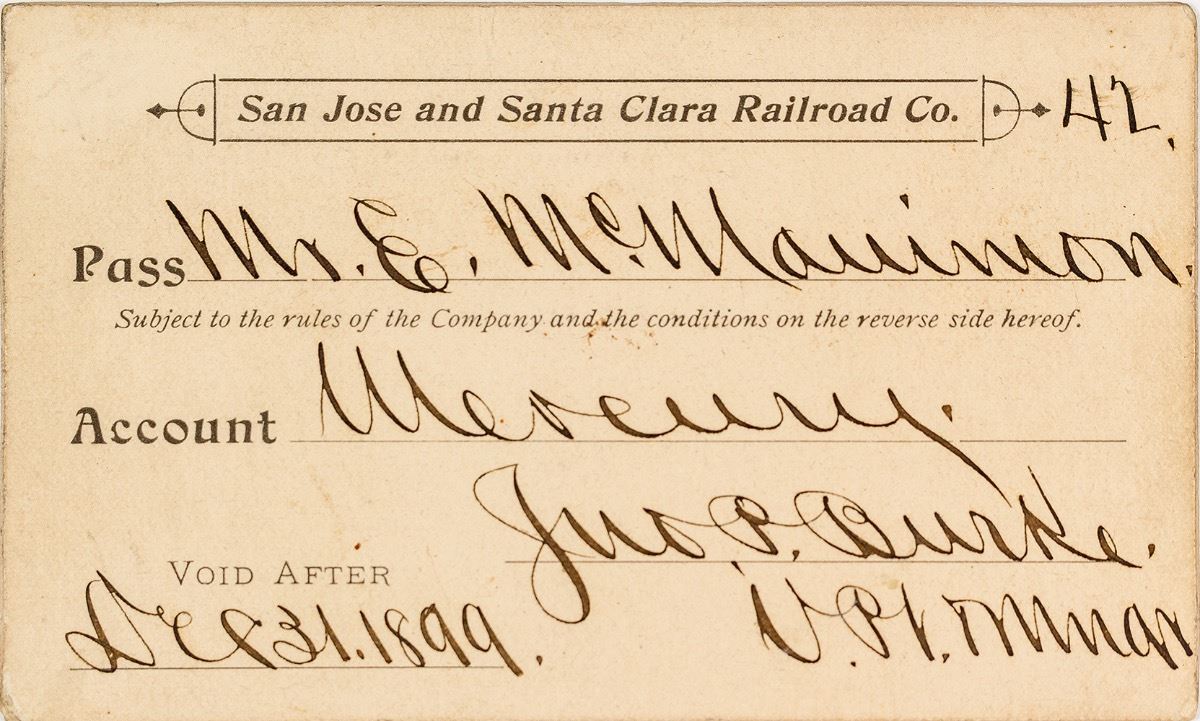 San Jose and Santa Clara Railroad Co. 42.
Pass Mr. E. McManimon.
Subject to the rules of the Company and the conditions on the reverse side hereof.
Account Mercury.
Jno. P. Burke.
VOID AFTER
Dec 31. 1899.
V.Pt. & Mngr